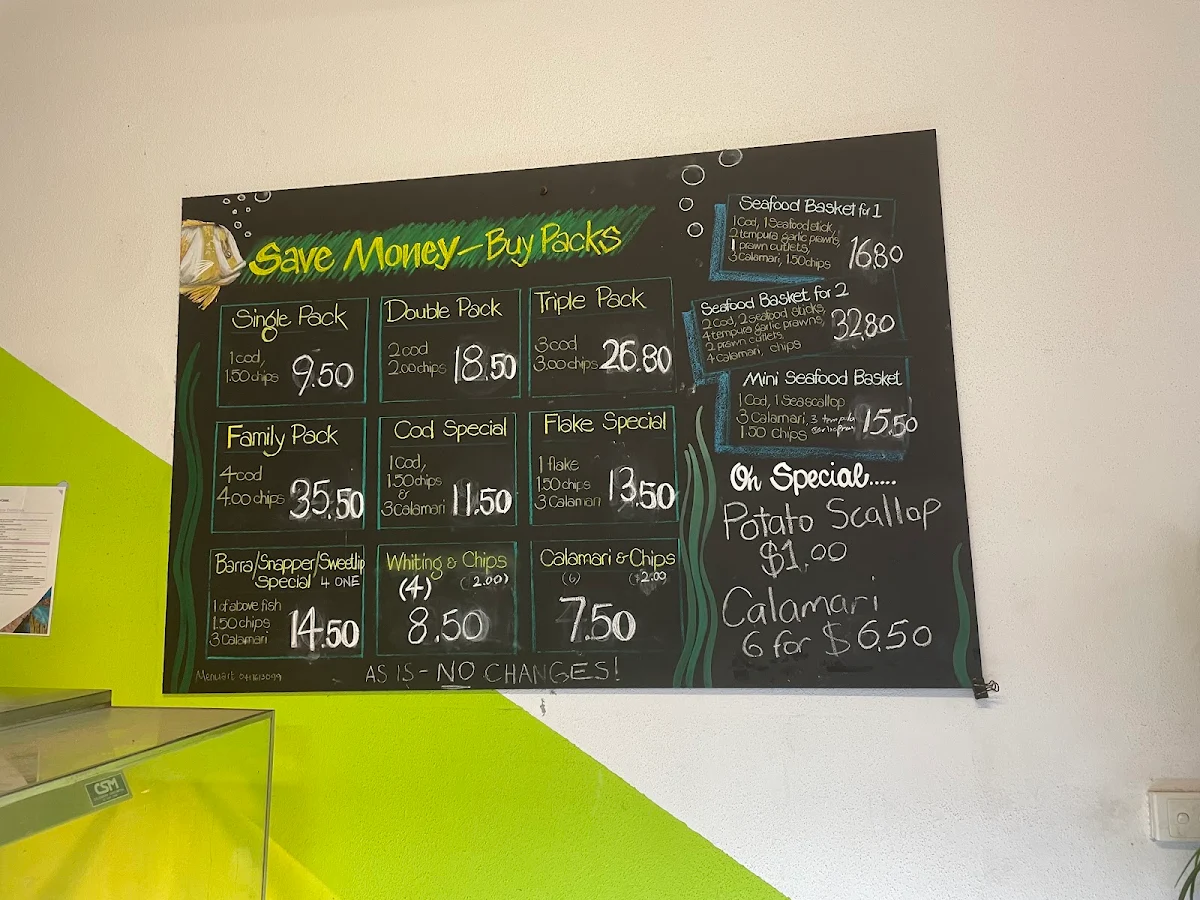 Save Money - Buy Packs
Single Pack
1 cod,
1.50 chips
9.50
Double Pack
2 cod
2.00 chips
18.50
Triple Pack
3 cod
3.00 chips
26.80
Family Pack
4 cod
4.00 chips
35.50
Cod Special
1 Cod,
1.50 chips
&
3 Calamari
11.50
Flake Special
1 flake
1.50 chips
3 Calamari
13.50
Barra/Snapper/Sweetlip
Special 4 ONE
1 of above fish
1.50 chips
3 Calamari
14.50
Whiting & Chips
(4) (2.00)
8.50
Calamari & Chips
(6) 2.00
7.50
AS IS - NO CHANGES!
Menuart
Seafood Basket for 1
1 Cod, 1 Seafood stick,
2 tempura garlic prawns,
1 prawn cutlets,
3 Calamari, 1.50 chips
16.80
Seafood Basket for 2
2 Cod, 2 seafood sticks,
4 tempura garlic prawns,
2 prawn cutlets,
4 calamari, chips
32.80
Mini Seafood Basket
1 Cod, 1 Seascallop
3 Calamari, 3 tempura
1.50 chips
15.50
On Special.....
Potato Scallop
$1.00
Calamari
6 for $6.50
CSM